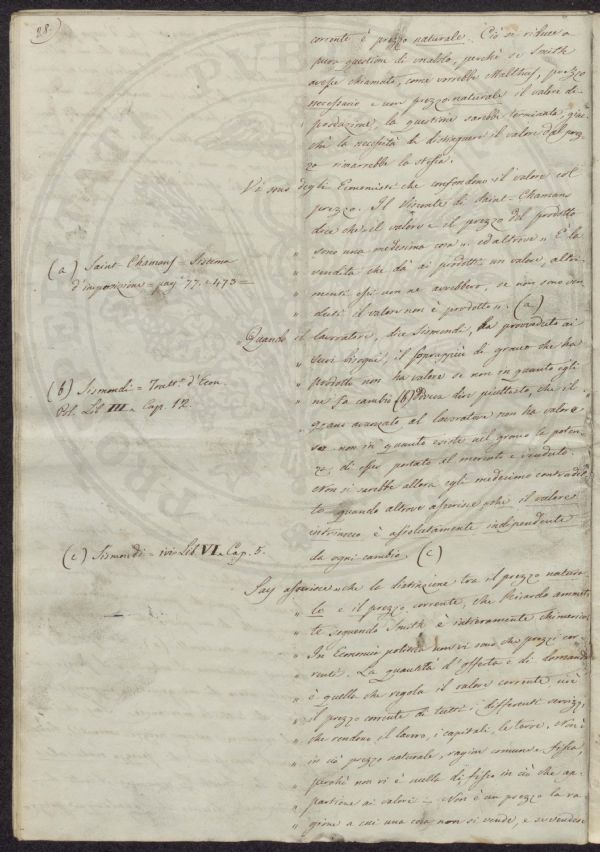 28)
corrente è prezzo naturale. Ciò si riduce a
pura quistione di vocabolo, perchè se Smith
avesse chiamato, come vorrebbe Malthus, prezzo
necessario e non prezzo naturale il valore di
produzione, la questione sarebbe terminata, giac-
chè la necessità di distinguere il valore dal prez-
zo rimarrebbe la stessa.
Vi sono degli Economisti che confondono il valore col
prezzo. Il Visconte di Saint-Chamans
dice che „ il valore e il prezzo del prodotto
„ sono una medesima cosa „ ed altrove „ È la
„ vendita che dà ai prodotti un valore, altri-
„ menti essi non ne avrebbero, se non sono ven-
„ duti il valore non è prodotto „. (a)
(a) Saint-Chamans = Sistema
d'imposizione = pag. 77. e 473 =
„ Quando il lavoratore, dice Sismondi, ha provveduto ai
„ suoi bisogni, il soprappiù di grano che ha
„ prodotto non ha valore se non in quanto egli
„ ne fa cambio (b) dovea dire piuttosto, che il
„ grano avanzato al lavoratore non ha valore
se non in quanto esiste nel grano la poten-
za, di esser portato al mercato e venduto.
Non si sarebbe allora egli medesimo contradet-
to quando altrove asserisce, che il valore
intrinseco è assolutamente indipendente
da ogni cambio. (c)
(b) Sismondi = Tratt.o d'Econ.
Pol. Lib. III. Cap. 12.
(c) Sismondi = ivi Lib. VI. Cap. 5.
Say asserisce „ che la distinzione tra il prezzo natura-
„ le e il prezzo corrente, che Ricardo ammet-
„ te seguendo Smith è interamente chimerica
„ In Economia politica non vi sono che prezzi cor-
„ renti. La quantità d'offerta e di domanda
„ è quella che regola il valore corrente, cioè
„ il prezzo corrente di tutti i differenti servizj,
„ che rendono il lavoro, i capitali, le terre. Non è
„ in ciò prezzo naturale, ragion comune e fissa,
„ perchè non vi è nulla di fisso in ciò che ap-
„ partiene ai valori – Non è un prezzo la ra-
„ gione a cui una cosa non si vende, e se vendesi